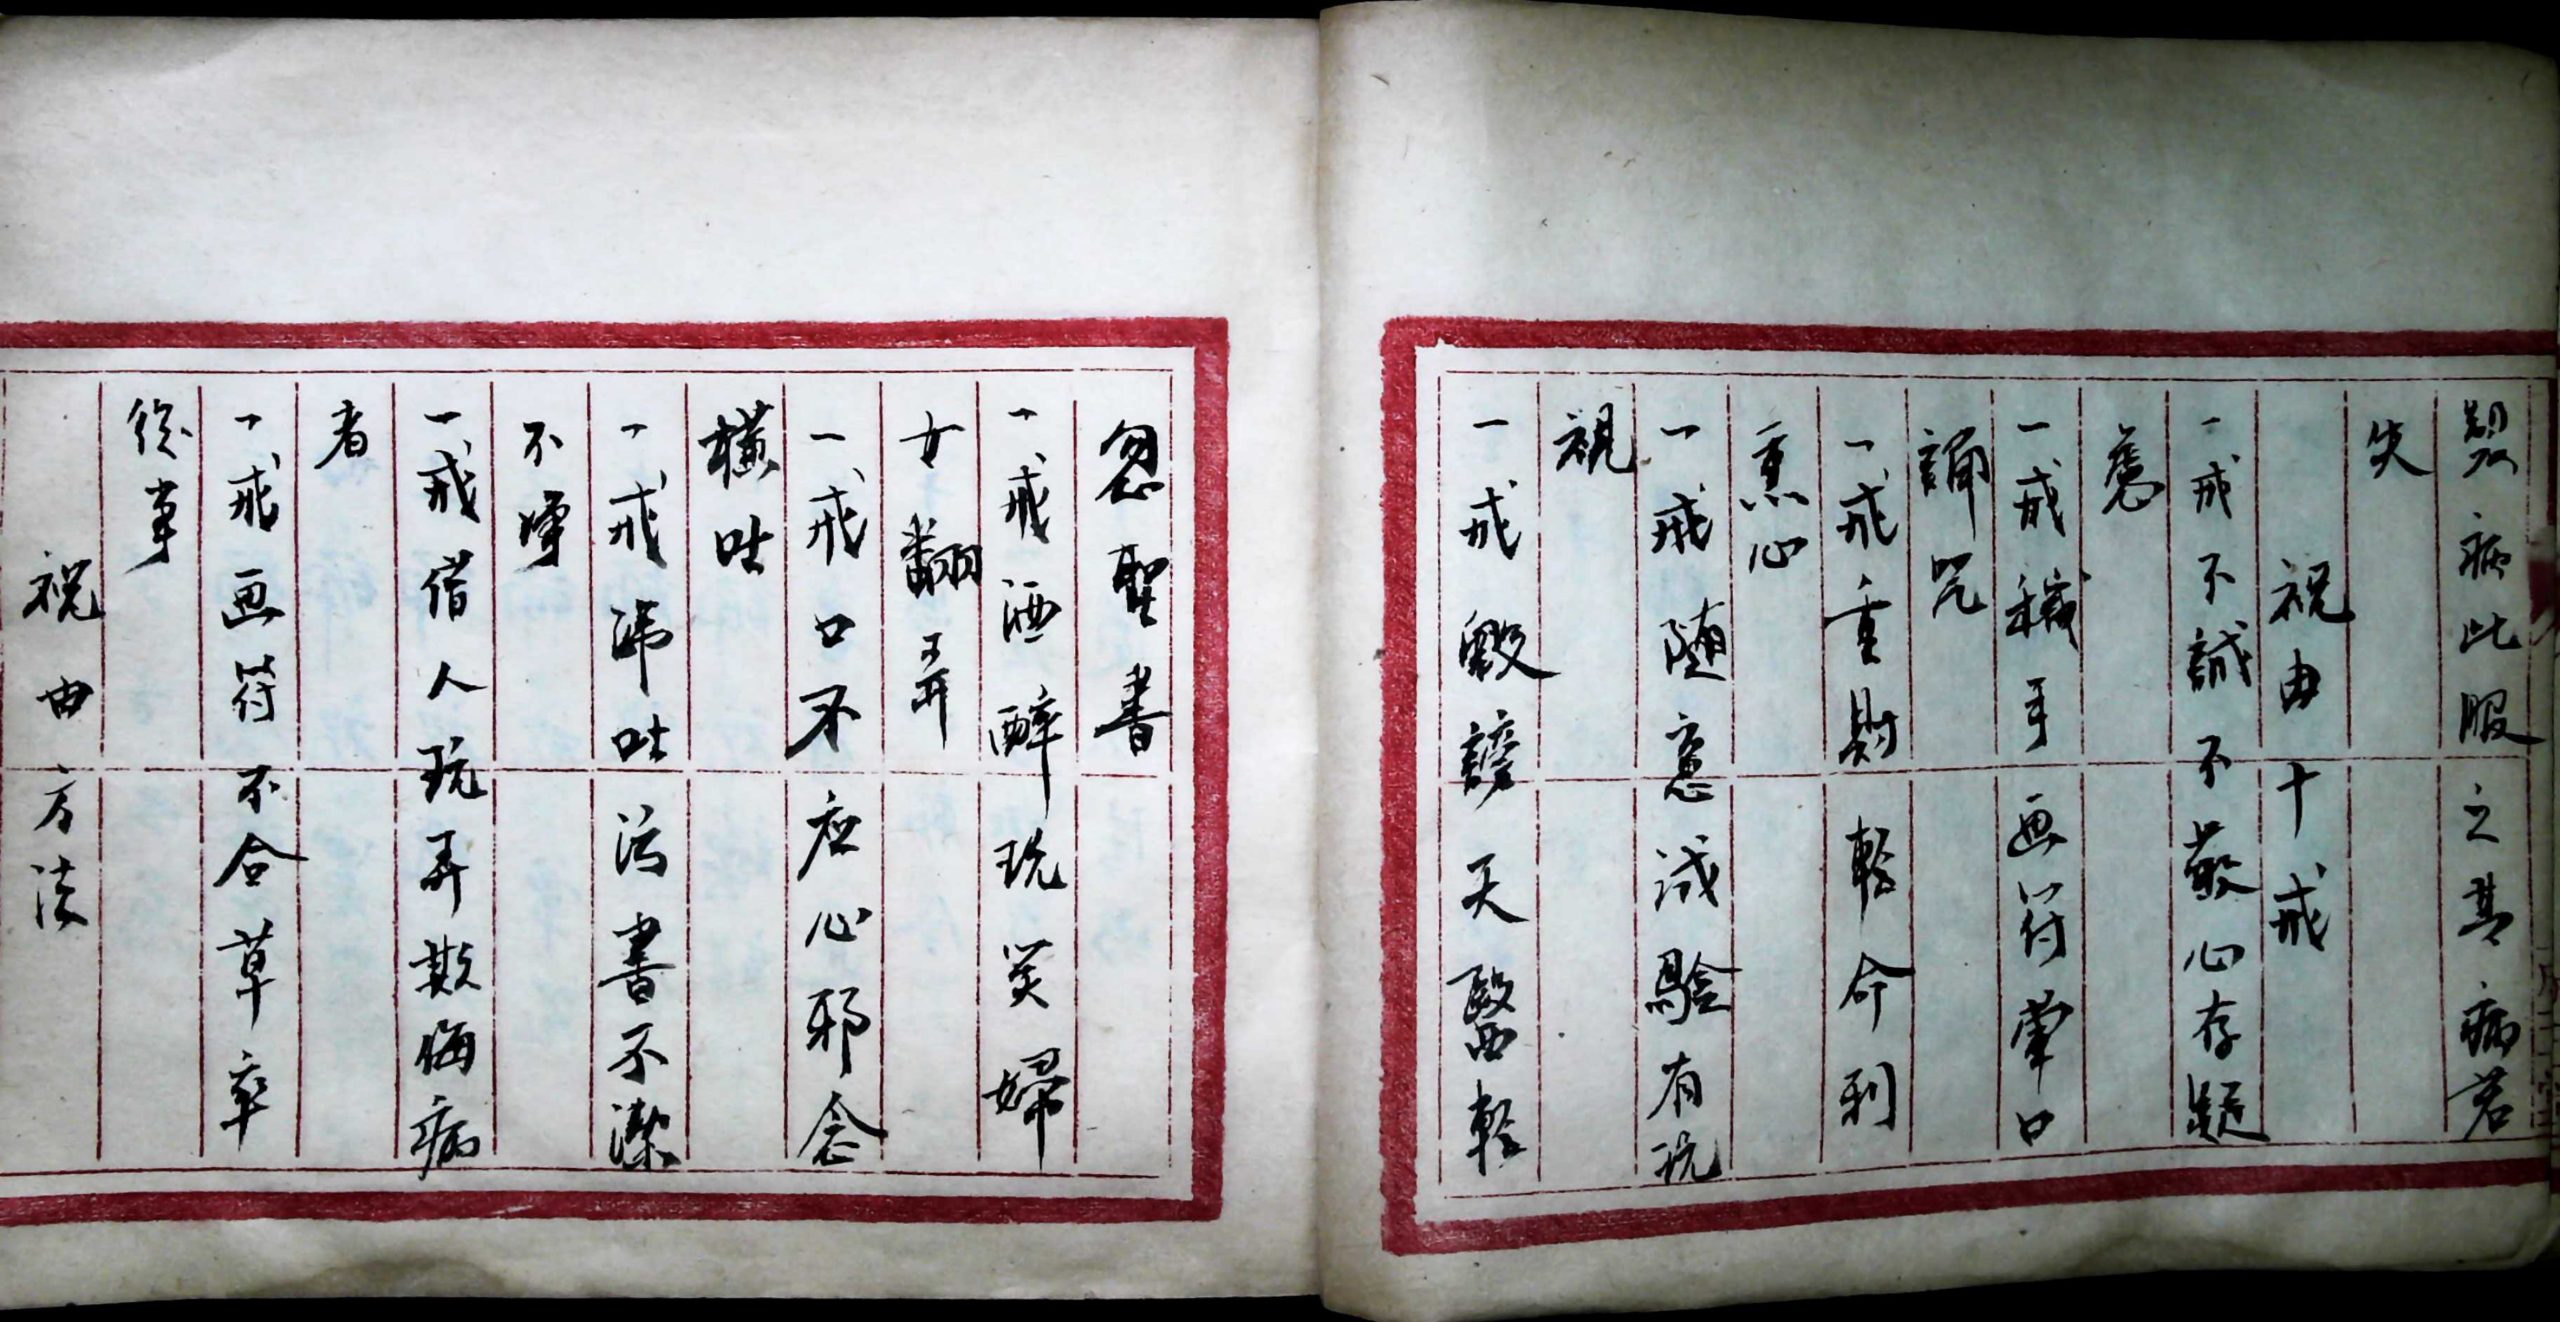 病此服之其病若
失
祝由十戒
一戒不誠不敬心存疑
慮
一戒穢手画符葷口
誦咒
一戒重財輕命利
熏心
一戒随意試驗有玩
視
一戒毀謗天醫輕
忽聖書
一戒酒醉玩笑婦
女翻弄
一戒口不应心邪念
橫吐
一戒涕吐污書不潔
不净
一戒借人玩弄欺侮病
者
一戒画符不合草率
從事
祝由方法